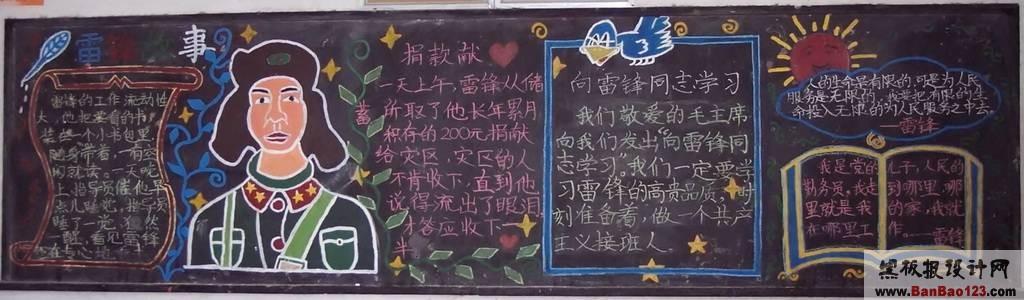 雷
事
雷锋的工作流动性
大，他把要看的书，
装在一个小书包里，
随身带着，一有空
闲就
捐款献
一天上午，雷锋从储蓄
所取了他长年累月
积存的200元捐献
给灾区，灾区的人
不肯收下，直到他
说得流出了眼泪
才答应收下一
半
向雷锋同志学习
我们敬爱的毛主席
向我们发出"向雷锋同
志学习"。我们一定要学
习雷锋的高贵品质，时
刻准备着，做一个共产
主义接班人
人的生命是有限的，可是为人民
服务是无限的，我要把有限的生
命投入无限的为人民服务之中去
——雷锋
我是党的
勤务员，我走
里就是我
在哪里工
干，人民的
到哪里，哪
的家，我就
作。——雷锋
黑板报设计网
www.BanBao123.com